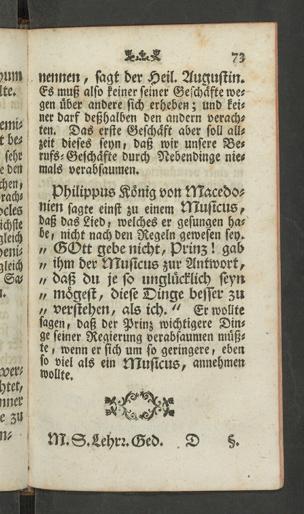 73
nennen, sagt der Heil. Augustin.
Es muß also keiner seiner Geschäfte we-
gen über andere sich erheben; und kei-
ner darf deßhalben den andern verach-
ten. Das erste Geschäft aber soll all-
zeit dieses seyn, daß wir unsere Be-
rufs-Geschäfte durch Nebendinge nie-
mals verabsaumen.
Philippus König von Macedo-
nien sagte einst zu einem Musicus,
daß das Lied, welches er gesungen ha-
be, nicht nach den Regeln gewesen sey.
„ GOtt gebe nicht, Prinz! gab
„ ihm der Musicus zur Antwort,
„ daß du je so unglücklich seyn
„ mögest, diese Dinge besser zu
„ verstehen, als ich.“ Er wollte
sagen, daß der Prinz wichtigere Din-
ge seiner Regierung verabsaumen müß-
te, wenn er sich um so geringere, eben
so viel als ein Musicus, annehmen
wollte.
M. S. Lehrr. Ged. D §.